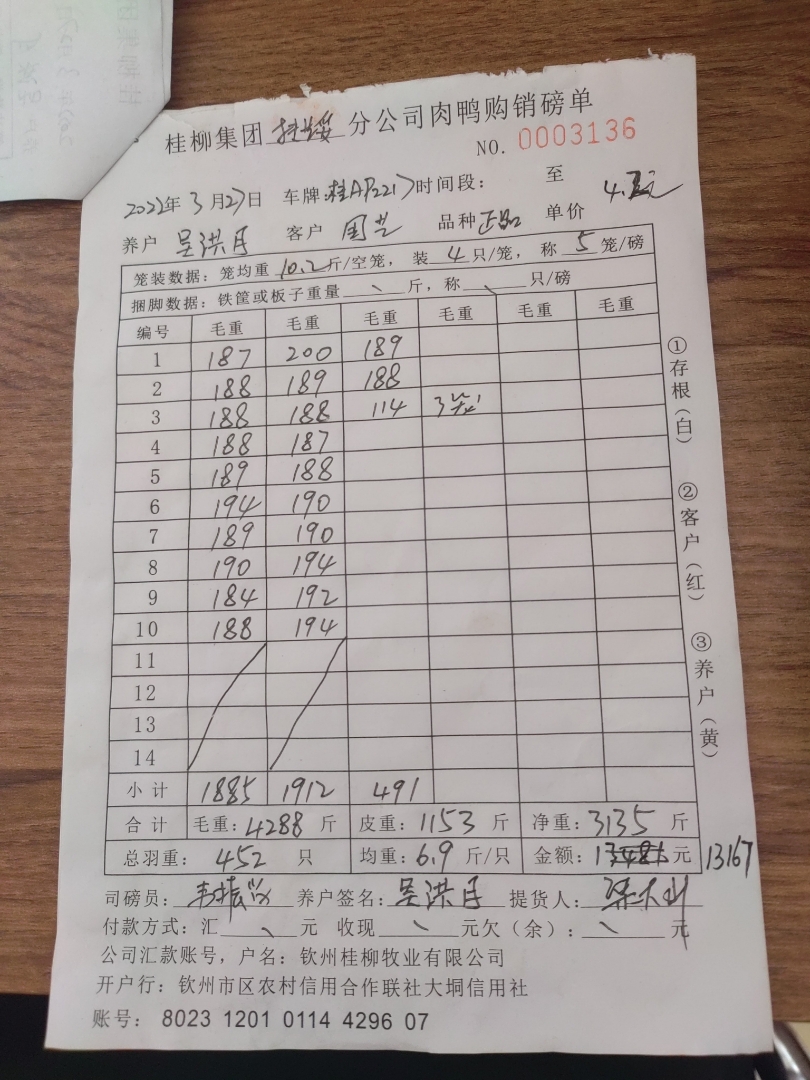 桂柳集团 分公司肉鸭购销磅单
NO. 0003136
2022年 3月27日 车牌:桂AP2217 时间段: 至
养户 吴洪月 客户 品种 正品 单价
笼装数据:笼均重 10.2 斤/空笼,装 4 只/笼,称 5 笼/磅
捆脚数据:铁筐或板子重量 、 斤,称 、 只/磅
编号 毛重 毛重 毛重 毛重 毛重 毛重
1 187 200 189
2 188 189 188
3 188 188 114 3笼
4 188 187
5 189 188
6 194 190
7 189 190
8 190 194
9 184 192
10 188 194
11
12
13
14
小计 1885 1912 491
合计 毛重:4288 斤 皮重:1153 斤 净重:3135 斤
总羽重: 452 只 均重:6.9 斤/只 金额: 元 13167
司磅员: 养户签名:吴洪月 提货人:
付款方式:汇 、 元 收现 、 元欠(余): 、 元
公司汇款账号,户名:钦州桂柳牧业有限公司
开户行:钦州市区农村信用合作联社大垌信用社
账号: 8023 1201 0114 4296 07
①存根(白)
②客户(红)
③养户(黄)